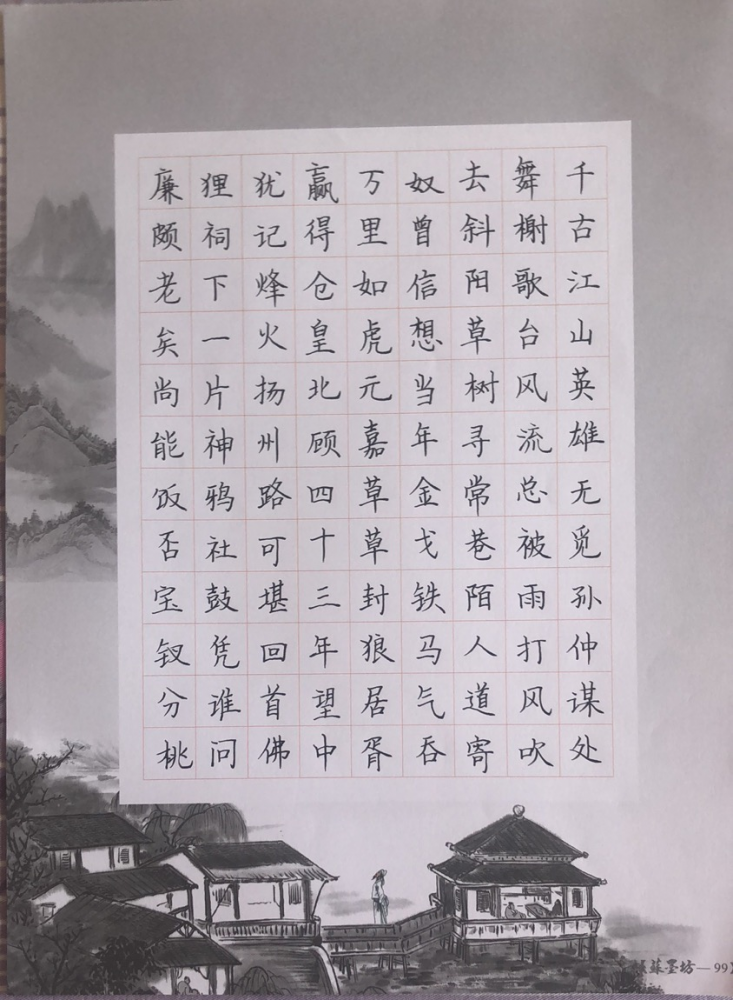 千古江山英雄无觅孙仲谋处
舞榭歌台风流总被雨打风吹
去斜阳草树寻常巷陌人道寄
奴曾信想当年金戈铁马气吞
万里如虎元嘉草草封狼居胥
赢得仓皇北顾四十三年望中
犹记烽火扬州路可堪回首佛
狸祠下一片神鸦社鼓凭谁问
廉颇老矣尚能饭否宝钗分桃
蘇墨坊—99